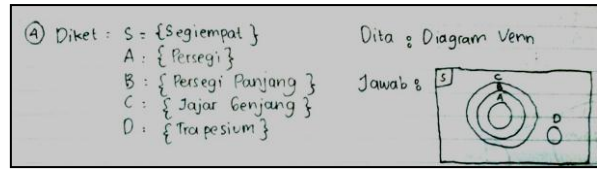 ④ Diket : S = {Segiempat}
A : {Persegi}
B : {Persegi Panjang}
C : {Jajar Genjang}
D : {Trapesium}
Dita : Diagram Venn
Jawab :
S
C
B
A
D